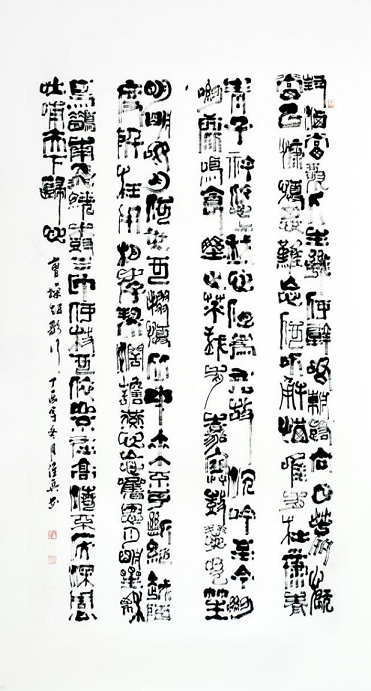 對酒當歌人生幾何譬如朝露去日苦多慨
當以慷憂思難忘何以解憂唯有杜康青
青子衿悠悠我心但為君故沉吟至今呦
呦鹿鳴食野之苹我有嘉賓鼓瑟吹笙
明明如月何時可掇憂從中來不可斷絕越陌
度阡枉用相存契闊談讌心念舊恩月明星稀
烏鵲南飛繞樹三匝何枝可依山不厭高海不厭深周公
吐哺天下歸心 曹操短歌行 丁酉年冬月 書